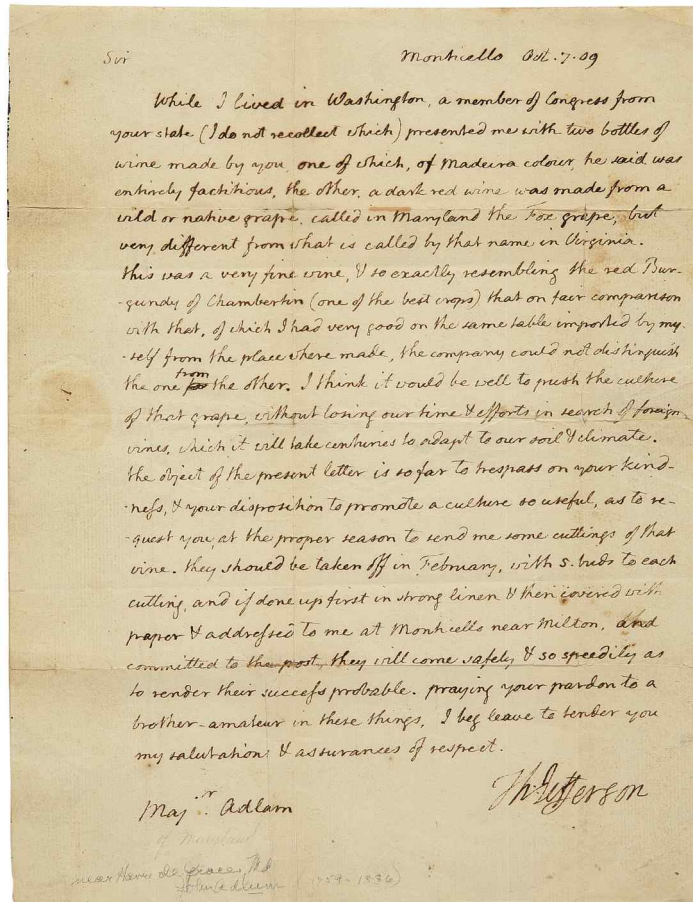 Sir
Monticello Oct. 7. 09
While I lived in Washington, a member of Congress from
your state (I do not recollect which) presented me with two bottles of
wine made by you, one of which, of Madeira colour, he said was
entirely factitious, the other, a dark red wine was made from a
wild or native grape, called in Maryland the Fox grape, but
very different from what is called by that name in Virginia.
this was a very fine wine, & so exactly resembling the red Bur-
-gundy of Chambertin (one of the best crops) that on fair comparison
with that, of which I had very good on the same table imported by my-
-self from the place where made, the company could not distinguish
the one from the other. I think it would be well to push the culture
of that grape, without losing our time & efforts in search of foreign
vines, which it will take centuries to adapt to our soil & climate.
the object of the present letter is so far to trespass on your kind-
-ness, & your disposition to promote a culture so useful, as to re-
-quest you, at the proper season to send me some cuttings of that
vine. they should be taken off in February, with 5. buds to each
cutting, and if done up first in strong linen & then covered with
paper & addressed to me at Monticello near Milton, and
committed to the post, they will come safely & so speedily as
to render their success probable. praying your pardon to a
brother-amateur in these things, I beg leave to tender you
my salutations & assurances of respect.
Th: Jefferson
Majr. Adlam
of Maryland
near Havre de Grace, Md
John Adlum (1759-1836)